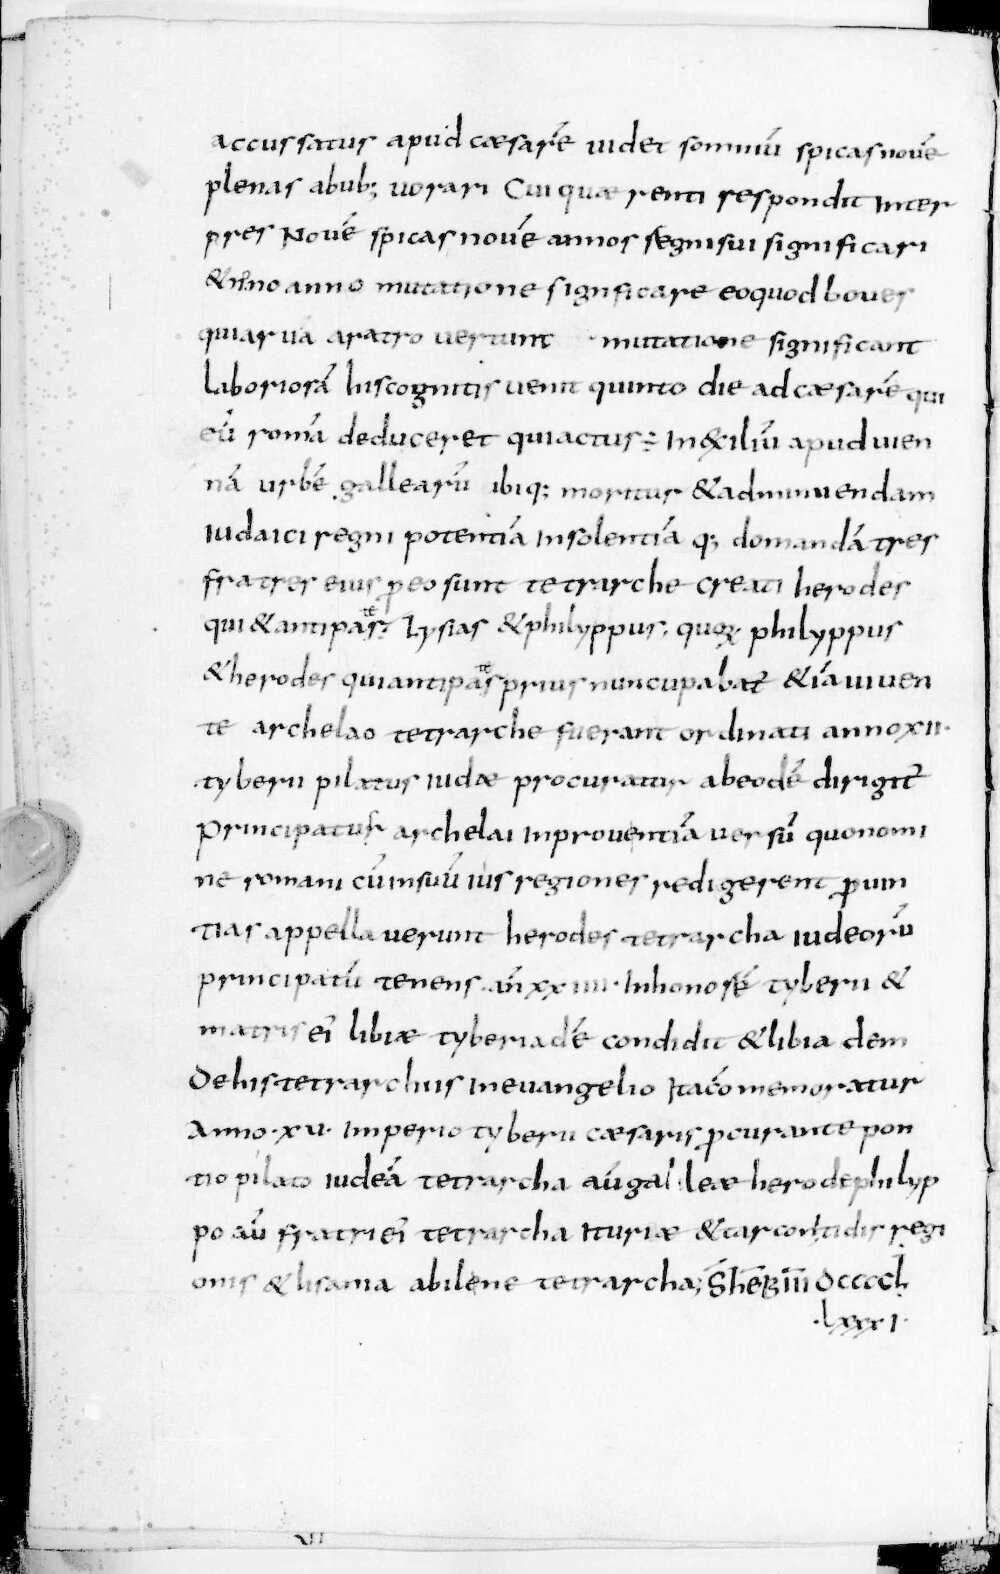 accussatus apud cæsarē uidet somniū spicas nouē
plenas abub; uorari Cui quærenti respondit Inter
pres Nouē spicas nouē annos regni sui significari
& nono anno mutatione significare eo quod boues
qui arua aratro uertunt mutatione significant
laboriosā his cognitis uenit quinto die ad cæsarē qui
eū romā deduceret qui actus ÷ In exiliū apud uien
nā urbē gallearū ibiq; moritur & ad minuendam
Iudaici regni potentiā Insolentiā q; domandā tres
fratres eius ꝓ eo sunt tetrarche creati herodes
qui & antipas Lysias & philyppus; quoꝝ philyppus
& herodes qui antipas prius nuncupabat̄ & iā uiuen
te archelao tetrarche fuerant ordinati anno xii·
tyberii pilatus iudæ procuratur ab eodē dirigit̄
Principatus archelai In prouentiā uersū quo nomi
ne romani cū in suū ius regiones redigerent ꝓuin
tias appellauerunt herodes tetrarcha iudeorū
principatū tenens an̄ xxiiii· In honorē tyberii &
matris ei libiæ tyberiadē condidit & libiadem
De his tetrarchiis In euangelio Ita cōmemoratur
Anno·xu· Imperio tyberii cæsaris ꝓcurante pon
tio pilato iudeā tetrarcha aū galileæ herode philyp
po aū fratri ei tetrarcha Ituriæ & tarcontidis regi
onis & lisania abilene tetrarcha;
·lxxxi·